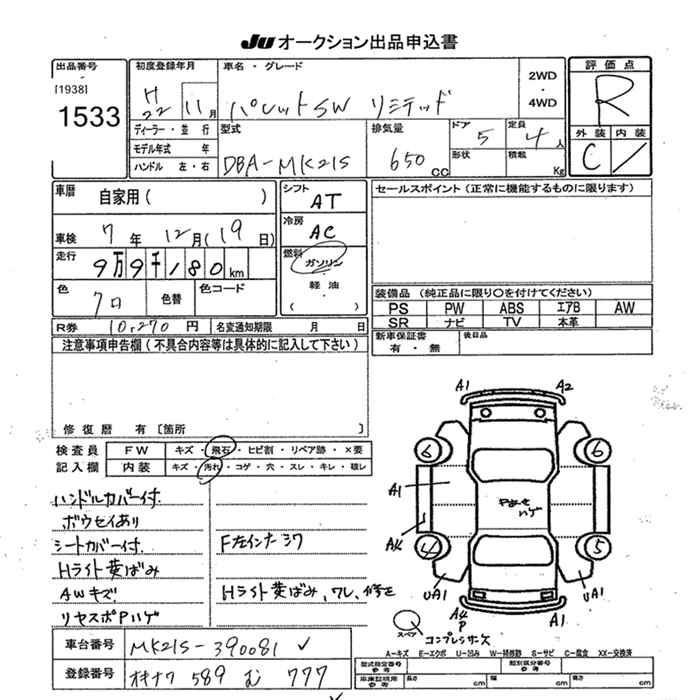 JU オークション出品申込書
出品番号
[1938]
1533
初度登録年月
H 22 11月
車名・グレード
パレットSW リミテッド
2WD
・
4WD
評価点
R
外装 内装
C
ディーラー・並行
モデル年式 年
ハンドル 左・右
型式
DBA-MK21S
排気量
650cc
ドア
5
形状
定員
4人
積載
Kg
車歴
自家用( )
車検 7年 12月(19日)
走行 9万9千180km
色
クロ
色替
色コード
シフト
AT
冷房
AC
燃料
ガソリン
・
軽油
・
( )
セールスポイント(正常に機能するものに限ります)
装備品 (純正品に限り○を付けてください)
PS PW ABS エアB AW
SR ナビ TV 本革
新車保証書
有・無
後日品
R券 10,270円
名変通知期限 月 日
注意事項申告欄(不具合内容等は具体的に記入して下さい)
修復歴 有〔箇所 〕
検査員
記入欄
FW キズ・飛石・ヒビ割・リペア跡・×要
内装 キズ・汚れ・コゲ・穴・スレ・キレ・破レ
ハンドルカバー付
ボウセイあり
シートカバー付
Hライト黄ばみ
AWキズ
リヤスポPハゲ
F左インナーシワ
Hライト黄ばみ、ワレ、修正
A1 A2
6 6
A1
ハゲ
A4
4 5
UA1 UA1
A4
P
A1
スペア
コンプレッサー欠
A-キズ E-エクボ U-凹み W-補修跡 S-サビ C-腐食 XX-交換済
車台番号 MK21S-390081
登録番号 オキナワ 589 む 777
型式指定番号
参考
類別区分番号
参考
車庫証明用
参考
長さ cm
幅 cm
高さ cm